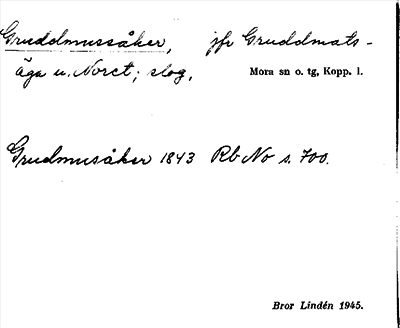 Gruddmussåker, jfr Gruddmats-
äga u. Noret; slog. Mora sn o. tg, Kopp. l.
Grudmusåker 1843 Rb No s. 700.
Bror Lindén 1945.